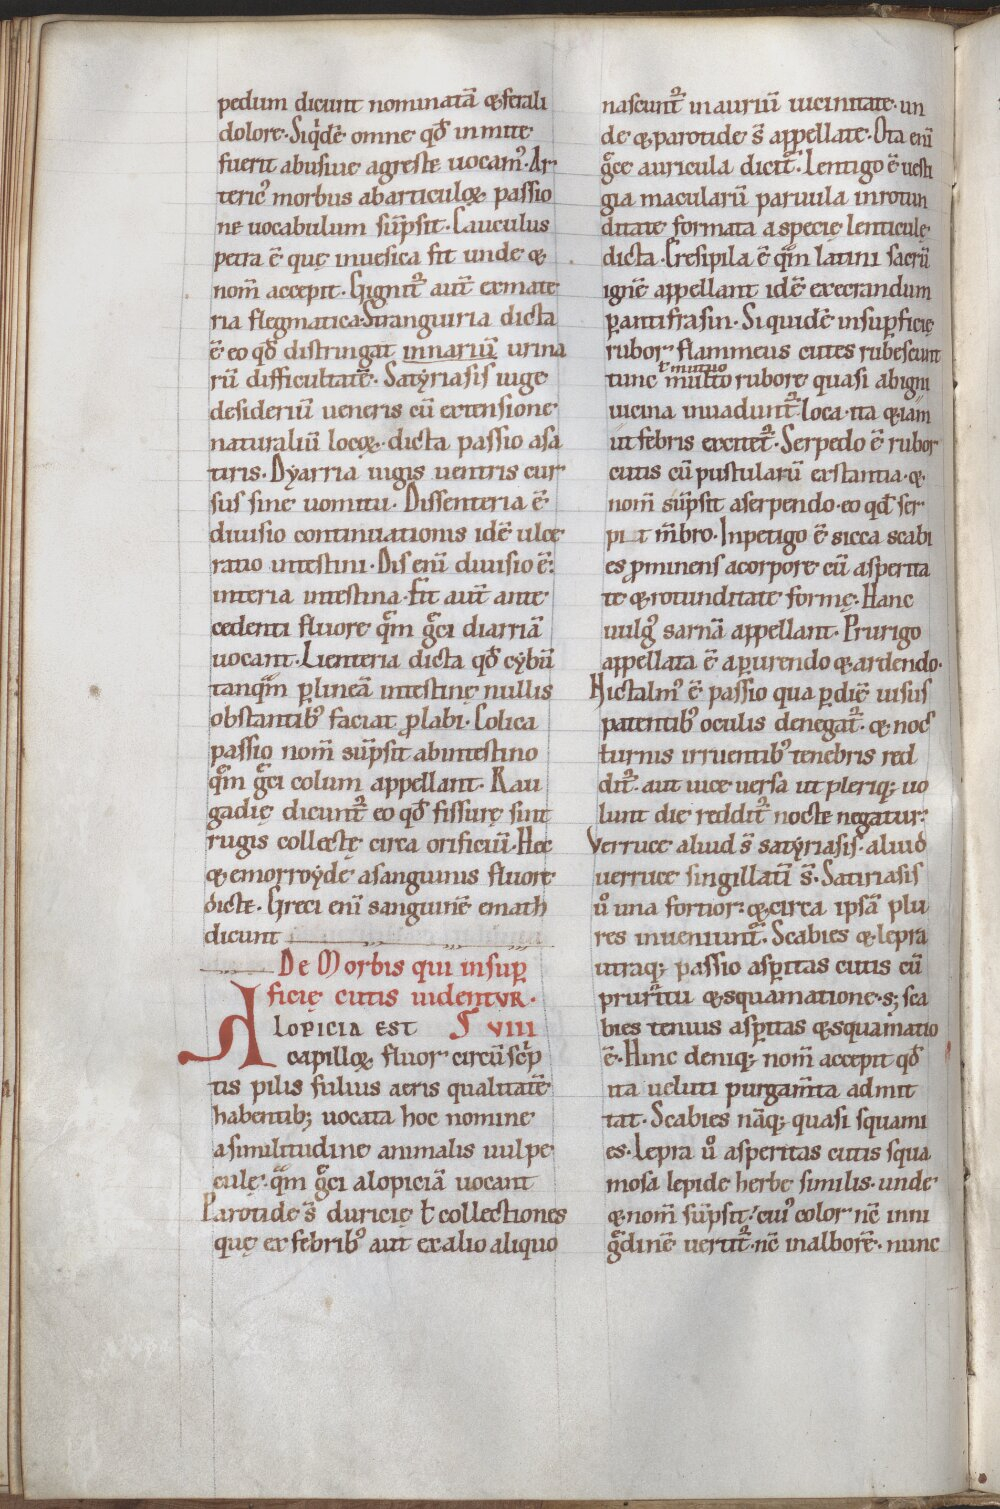 pedum dicunt nominatā & ferali
dolore. Siqͥdē omne qđ inmite
fuerit abusiue agreste uocam᾽. Ar
teric᾽ morbus abarticuloꝝ passio
ne uocabulum sūpsit. Cauculus
petra ē quę inuesica fit unde &
nom̄ accepit. Gignit᷑ aut̄ exmate
ria flegmatica. Stranguiria dicta
ē eo qđ distringat innariū urina
rū difficultatē. Satyriasis iuge
desideriū ueneris cū extensione
naturaliū locoꝝ. dicta passio asa
tiris. Dyarria iugis uentris cur
sus sine uomitu. Dissenteria ē
diuisio continuationis idē ulce
ratio intestini. Dis enī diuisio ē.
interia intestina. Fit aut̄ ante
cedenti fluore qͣm gͣci diarriā
uocant. Lienteria dicta qđ cybū
tanqͣm ꝑlineā intestinę nullis
obstantib᾽ faciat ꝓlabi. Colica
passio nom̄ sūpsit abintestino
qͣm gͣci colum appellant. Rau
gadię dicunt᷑ eo qđ fissurę sint
rugis collectę circa orificiū. Hec
& emorroyde asanguinis fluore
dicte. Greci enī sanguinē emath
dicunt
De Morbis qui insuꝑ
ficię cutis uidentVR.
ALOPICIA EST VIII
capilloꝝ fluor circūscͥp
tis pilis fuluus aeris qualitatē
habentib; uocata hoc nomine
asimilitudine animalis uulpe
culę. qͣm gͣci alopiciā uocant
Parotide s̄ duricię ł collectiones
quę ex febrib᾽ aut exalio aliquo
nascunt᷑ inauriū uicinitate. un
de & parotide s̄ appellate. Ota enī
gͣce auricula dicit᷑. Lentigo ē uesti
gia macularū paruula inrotun
ditate formata aspecię lenticulę
dicta. Eresipila ē qͣm latini sacrū
ignē appellant idē execrandum
ꝑantifrasin. Siquidē insuꝑficię
rubor flammeus cutes rubescunt
ł mutuo
tunc multo rubore quasi abigni
uicina inuadunt᷑ loca. ita & iam
ut febris excitet᷑. Serpedo ē rubor
cutis cū pustularū exstantia. &
nom̄ sūpsit aserpendo. eo qđ ser
pi t m̄bro. Inpetigo ē sicca scabi
es ꝓminens acorpore cū asperita
te & rotunditate formę. Hanc
uulg᾽ sarnā appellant. Prurigo
appellata ē aꝑurendo & ardendo.
Nictalm᾽ ē passio qua ꝑdiē uisus
patentib᾽ oculis denegat᷑. & noc᾽
turnis irruentib᾽ tenebris red
dit᷑. aut uice uersa ut pleriq; uo
lunt die reddit᷑ nocte negatur.
Verruce aliud s̄ satyriasis. aliud
uerruce singillatī s̄. Satiriasis
uͦ una fortior. & circa ipsā plu
res inueniunt᷑. Scabies & lepra
utraq; passio asꝑitas cutis cū
pruritu & squamatione. s; sca
bies tenuis asꝑitas & squamatio
ē. Hinc deniq; nom̄ accepit qđ
ita ueluti purgam̄ta admit
tat. Scabies nāq; quasi squami
es. Lepra uͦ asperitas cutis squa
mosa lepide herbe similis. unde
& nom̄ sūpsit. cui᾽ color nc̄ inni
gͣdinē uertit᷑. nc̄ inalborē. nunc